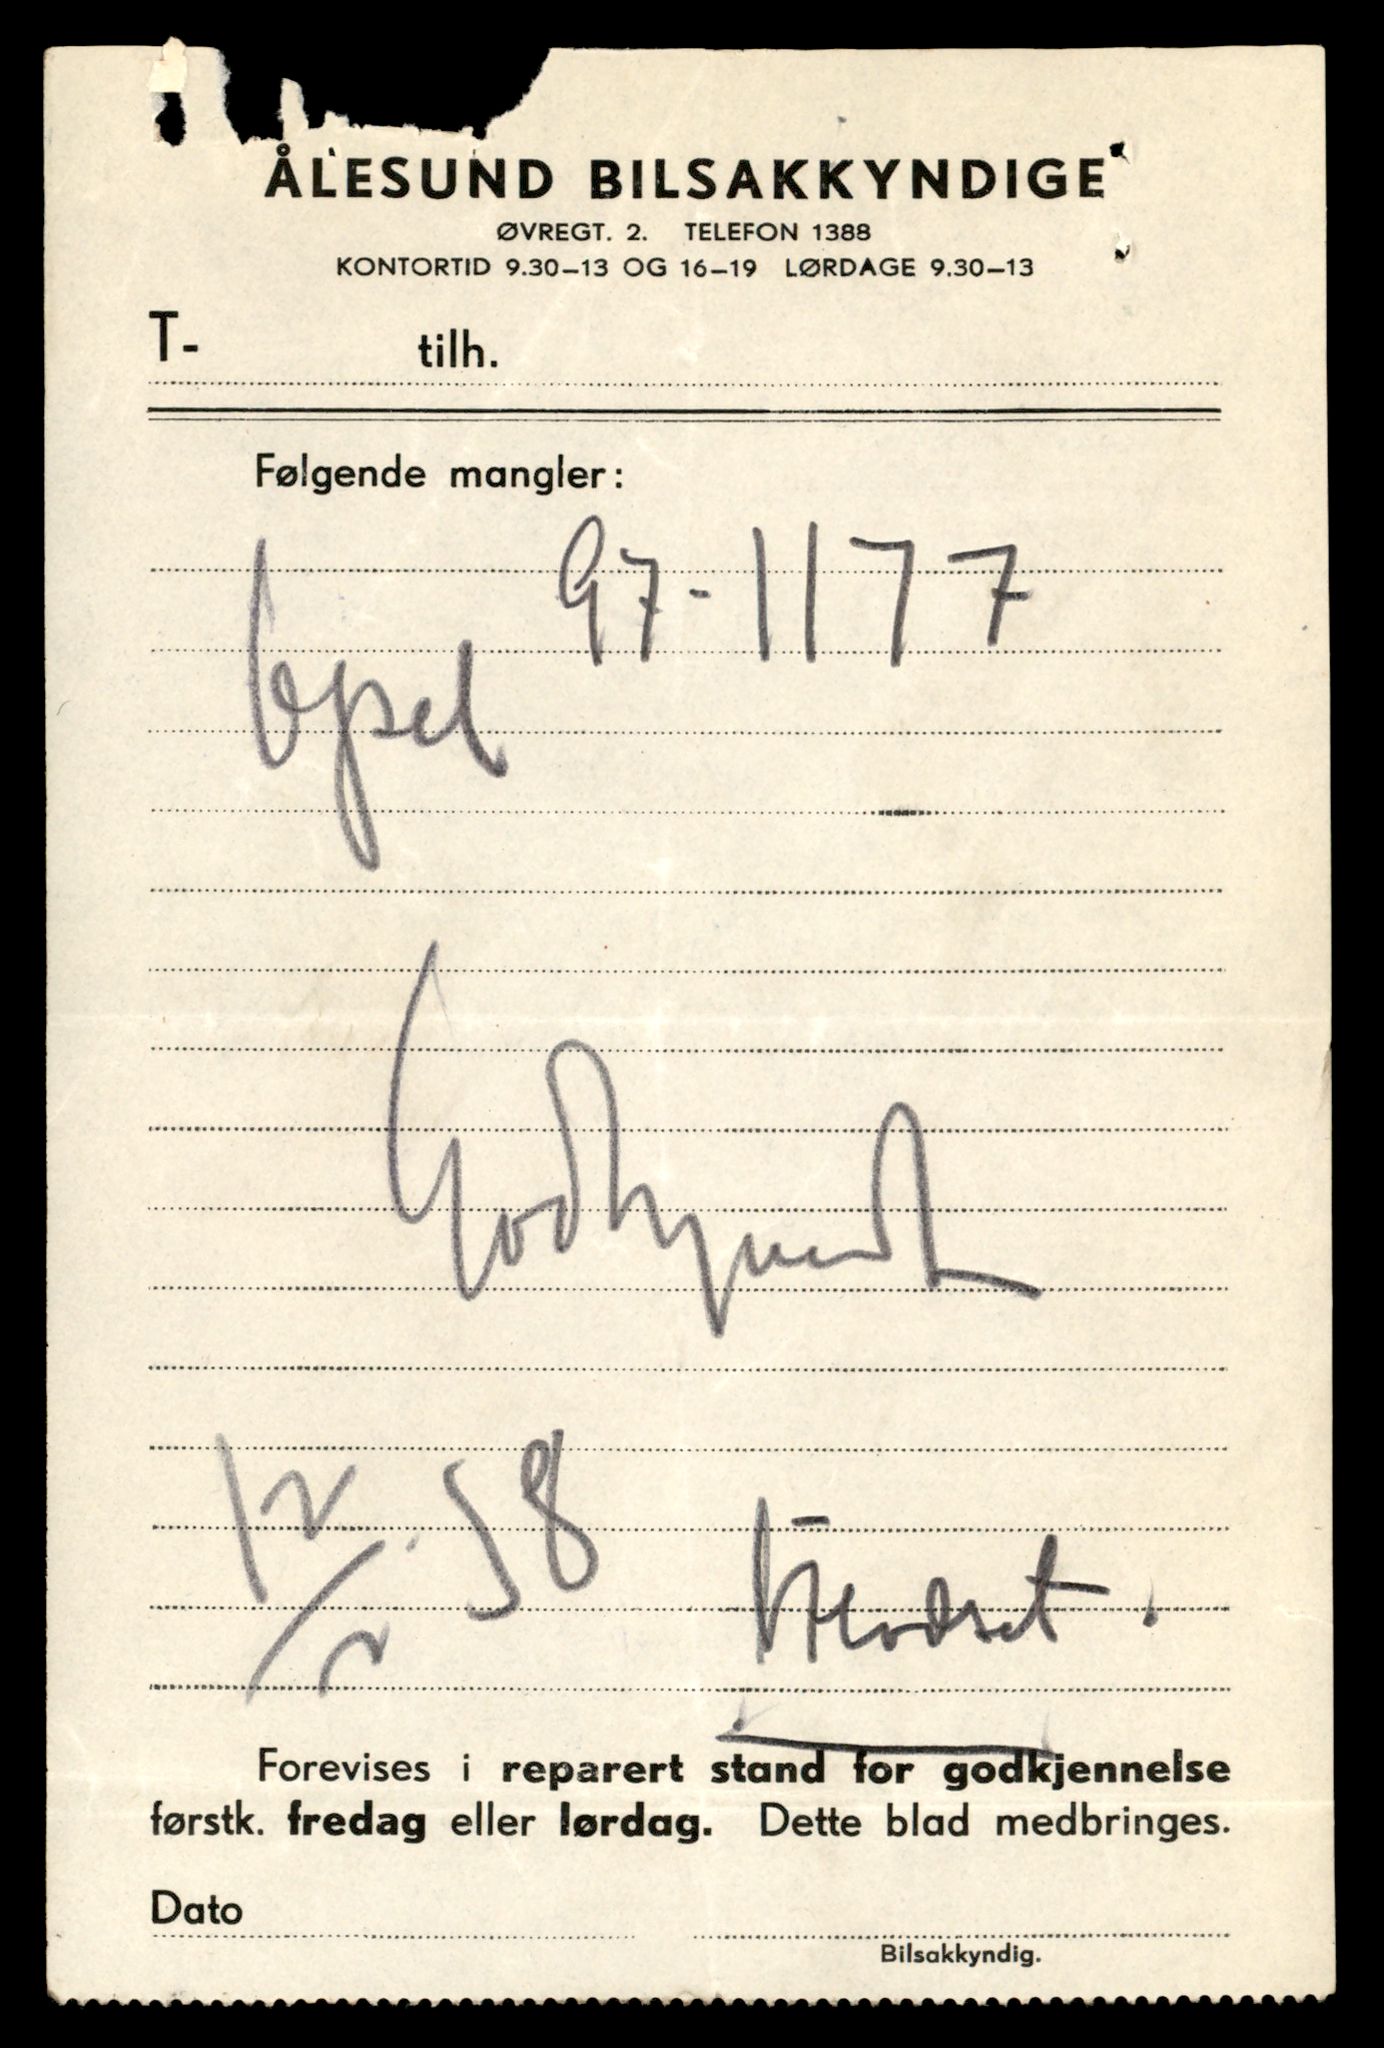 ÅLESUND BILSAKKYNDIGE
ØVREGT. 2. TELEFON 1388
KONTORTID 9.30–13 OG 16–19 LØRDAGE 9.30–13
T- tilh.
Følgende mangler:
97-1177
Opel
Godkjendt
12/2.58
Forevises i reparert stand for godkjennelse
førstk. fredag eller lørdag. Dette blad medbringes.
Dato
Bilsakkyndig.